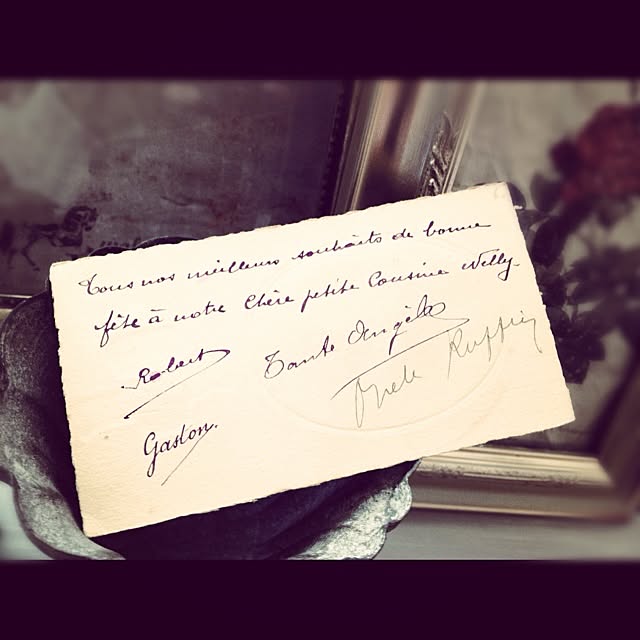 Tous nos meilleurs souhaits de bonne
fête à notre Chère petite Cousine Nelly
Robert
Tante Angèle
Gaston.